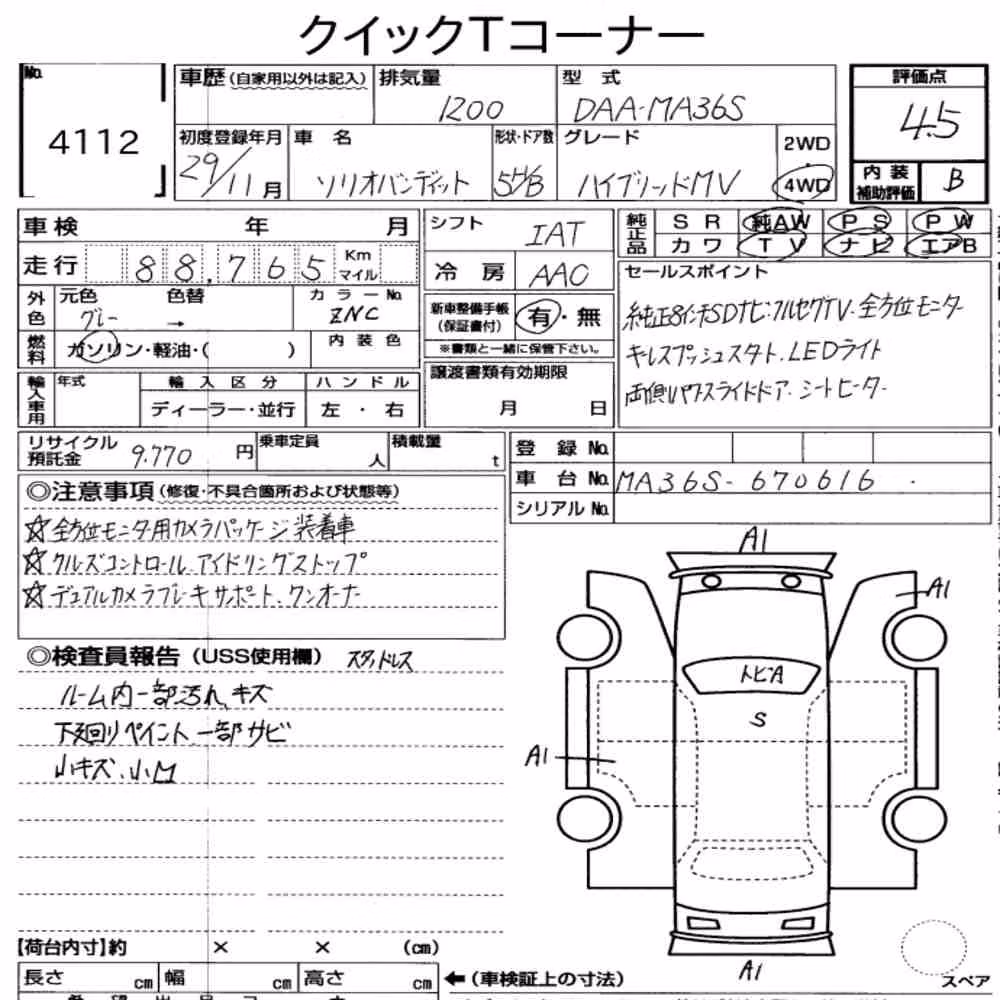 クイックTコーナー
No. 4112
車歴 (自家用以外は記入) 排気量 1200 型式 DAA-MA36S 評価点 4.5
初度登録年月 29/11月 車名 ソリオバンディット 形状・ドア数 5 グレード ハイブリッドMV 2WD 4WD 内装補助評価 B
車検 年 月 シフト IAT 純正品 SR 純AW PS PW
カワ TV ナビ エアB
走行 88,765 Km マイル 冷房 AAC
セールスポイント
純正8インチSDナビ:フルセグTV.全方位モニター
キーレスプッシュスタート.LEDライト
両側パワースライドドア.シートヒーター
外色 元色 グレー → 色替 カラーNo. ZNC
新車整備手帳 (保証書付) 有・無
※書類と一緒に保管下さい。
燃料 ガソリン・軽油・( ) 内装色
輸入車用 年式 輸入区分 ハンドル
ディーラー・並行 左・右
譲渡書類有効期限
月 日
リサイクル預託金 9.770 円 乗車定員 人 積載量 t
登録No.
車台No. MA36S-670616
シリアルNo.
◎注意事項 (修復・不具合箇所および状態等)
☆全方位モニター用カメラパッケージ装着車
☆クルーズコントロール.アイドリングストップ
☆デュアルカメラブレーキサポート.ワンオーナー
◎検査員報告 (USS使用欄) スタッドレス
ルーム内一部汚れ、キズ
下廻りペイント、一部サビ
小キズ、小凹
A1
A1
トビA
S
A1
A1
【荷台内寸】約 × × (cm)
長さ cm 幅 cm 高さ cm
←(車検証上の寸法)
スペア